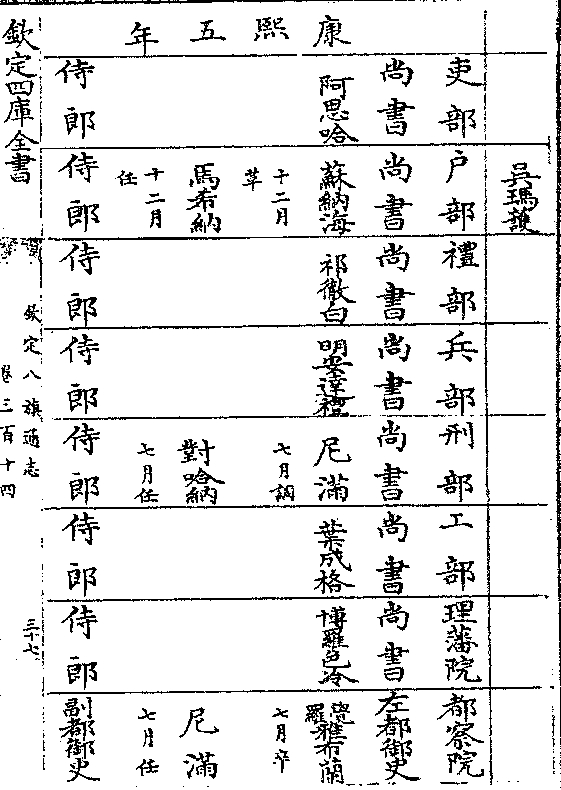 吳瑪護
吏部 戶部 禮部 兵部 刑部 工部 理藩院 都察院
尚書 尚書 尚書 尚書 尚書 尚書 尚書 左都御史
康熙五年
阿思哈
蘇納海 十二月革
馬希納 十二月任
祁徹白
明安達禮
尼滿 七月調
對哈納 七月任
葉成格
博羅色冷
覺羅雅布蘭 七月卒
尼滿 七月任
侍郎 侍郎 侍郎 侍郎 侍郎 侍郎 侍郎 副都御史
欽定四庫全書
欽定八旗通志
卷三百十四
三十七